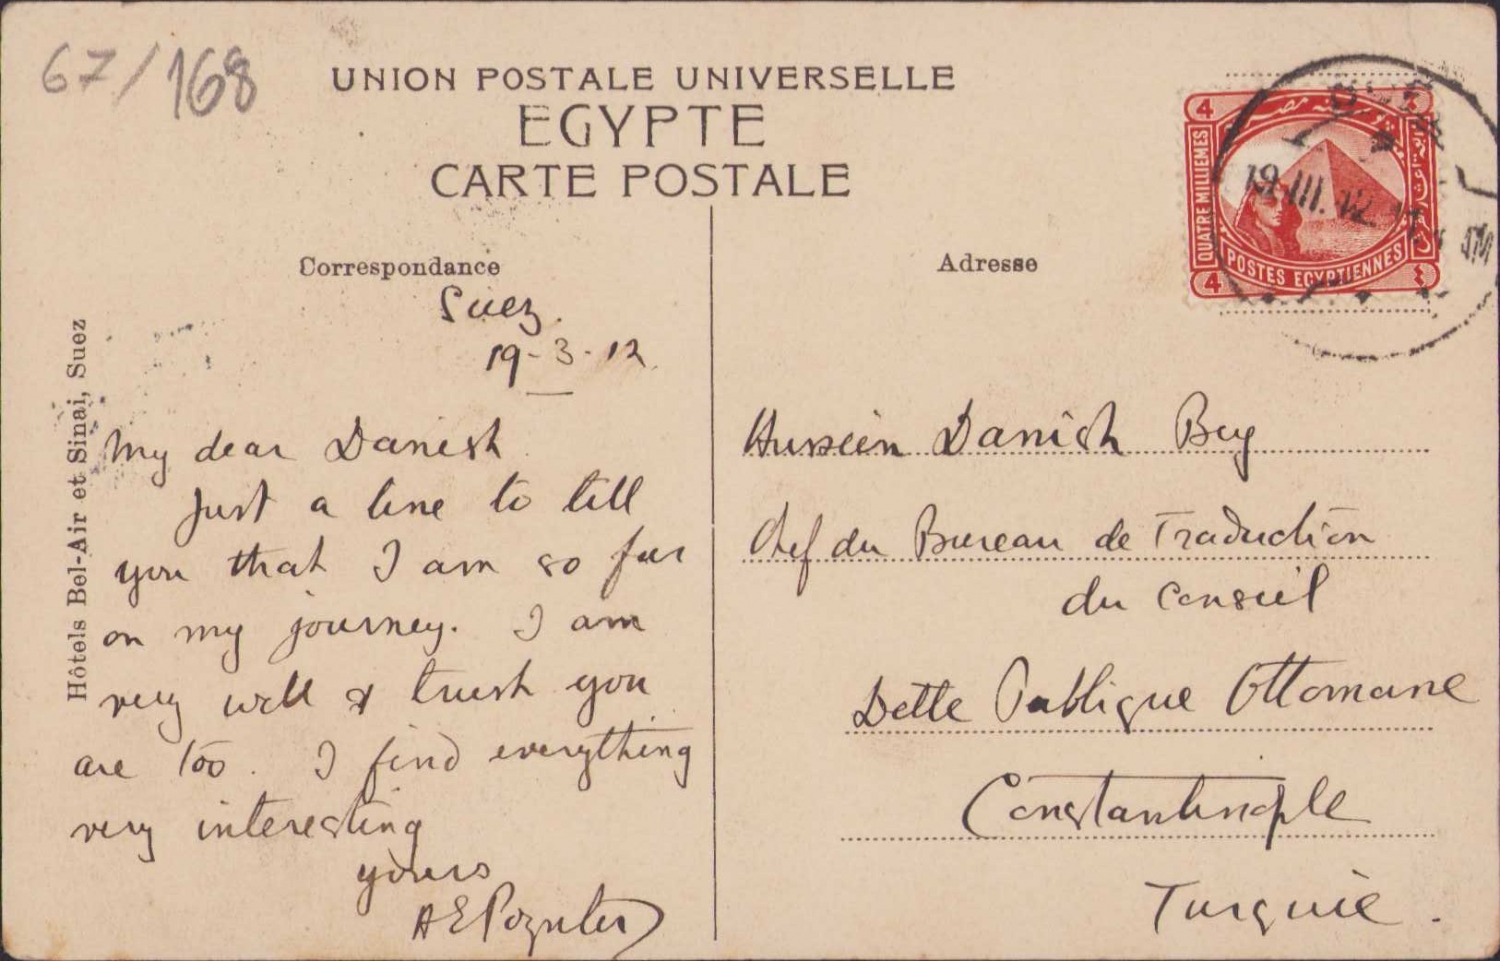 67/168
UNION POSTALE UNIVERSELLE
EGYPTE
CARTE POSTALE
Correspondance
Suez.
19-3-12
My dear Danish
Just a line to tell
you that I am so far
on my journey. I am
very well & trust you
are too. I find everything
very interesting
yours
AEPoynter
Hôtels Bel-Air et Sinai, Suez
Adresse
Hussein Danish Bey
Chef du Bureau de Traduction
du Conseil
Dette Publique Ottomane
Constantinople
Turquie.
4
QUATRE MILLIEMES
POSTES EGYPTIENNES
4
19.III.12
AM